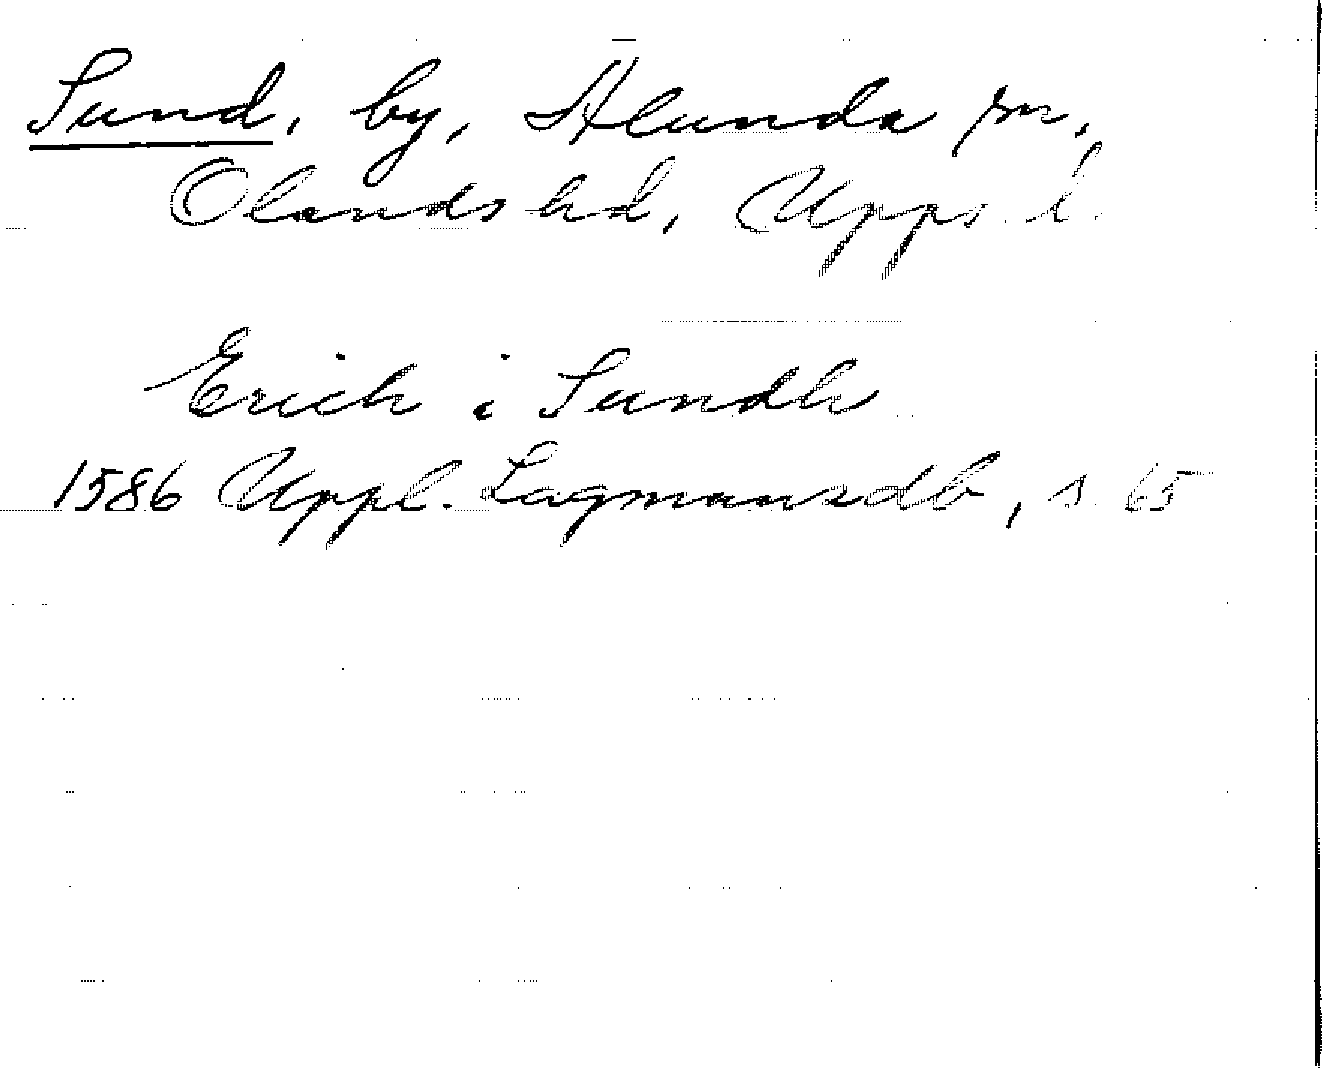 Sund, by, Alunda sn,
Olands hd, Upps. l.
Erich i Sundh
1586 Uppl. Lagmansdb, s 65